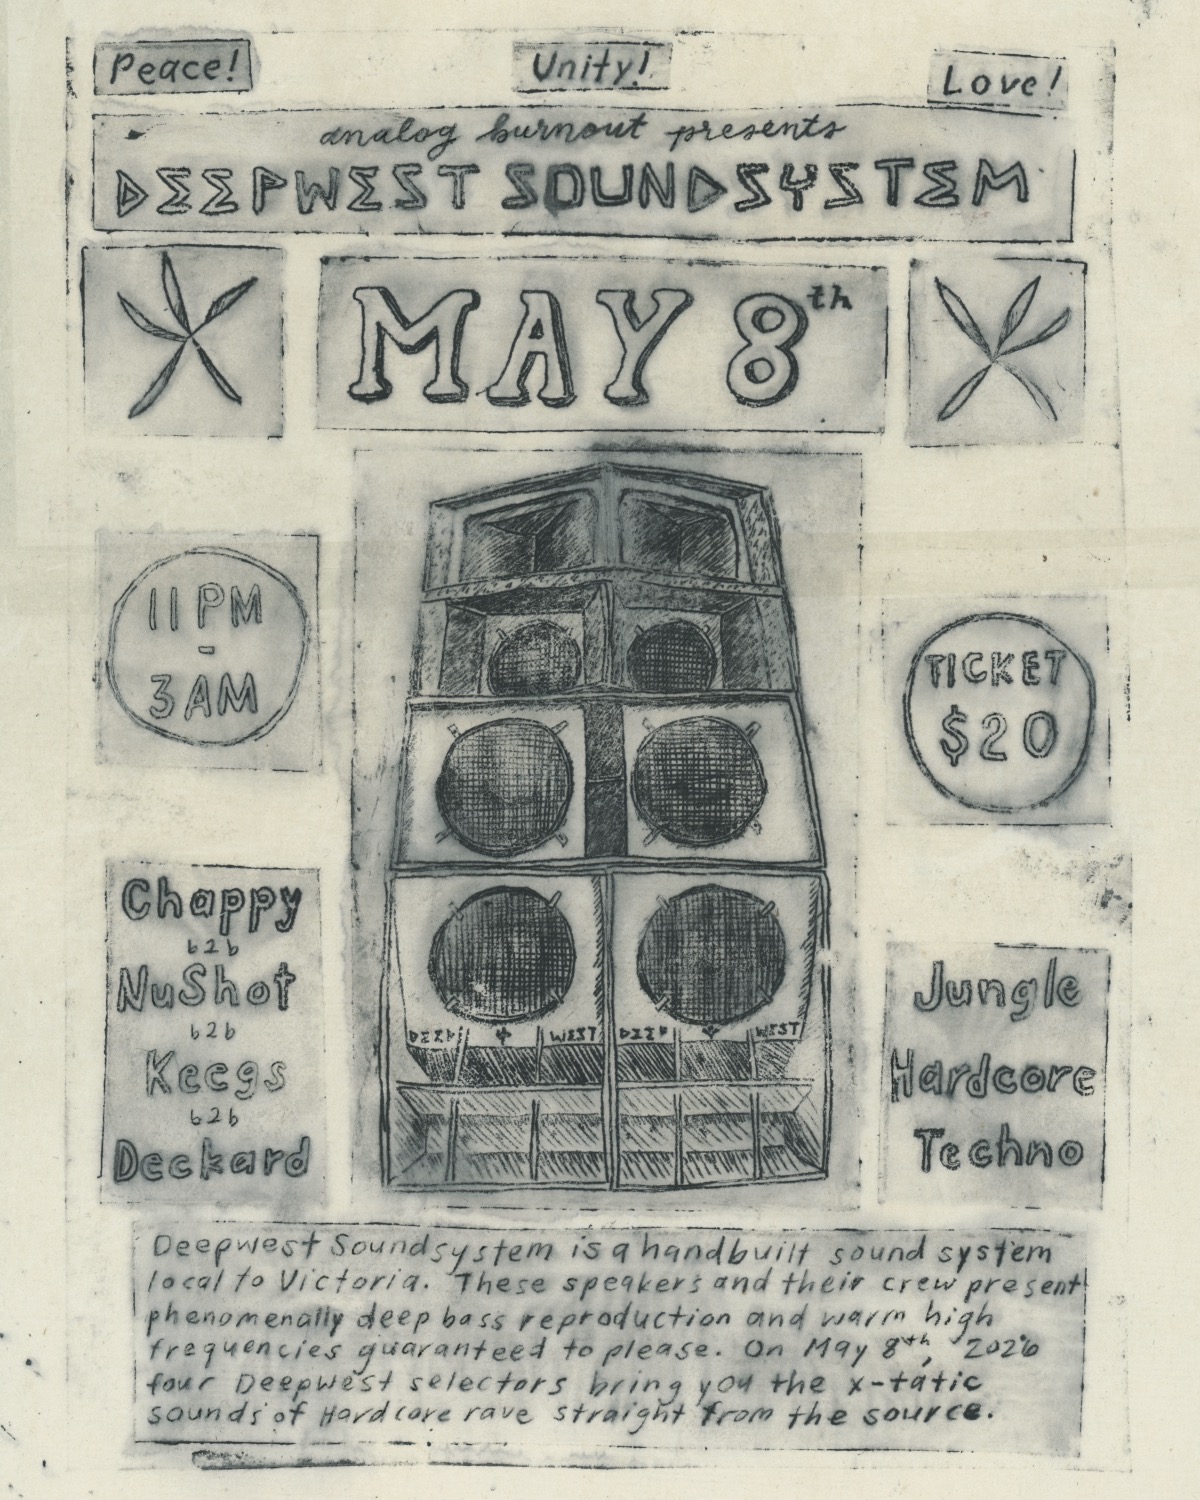 Peace!
Unity!
Love!
analog burnout presents
DEEPWEST SOUNDSYSTEM
MAY 8th
11PM
-
3AM
TICKET
$20
Chappy
b2b
NuShot
b2b
Keegs
b2b
Deckard
DEEP WEST DEEP WEST
Jungle
Hardcore
Techno
Deepwest Soundsystem is a handbuilt sound system
local to Victoria. These speakers and their crew present
phenomenally deep bass reproduction and warm high
frequencies guaranteed to please. On May 8th, 2026
four Deepwest selectors bring you the x-tatic
sounds of Hardcore rave straight from the source.